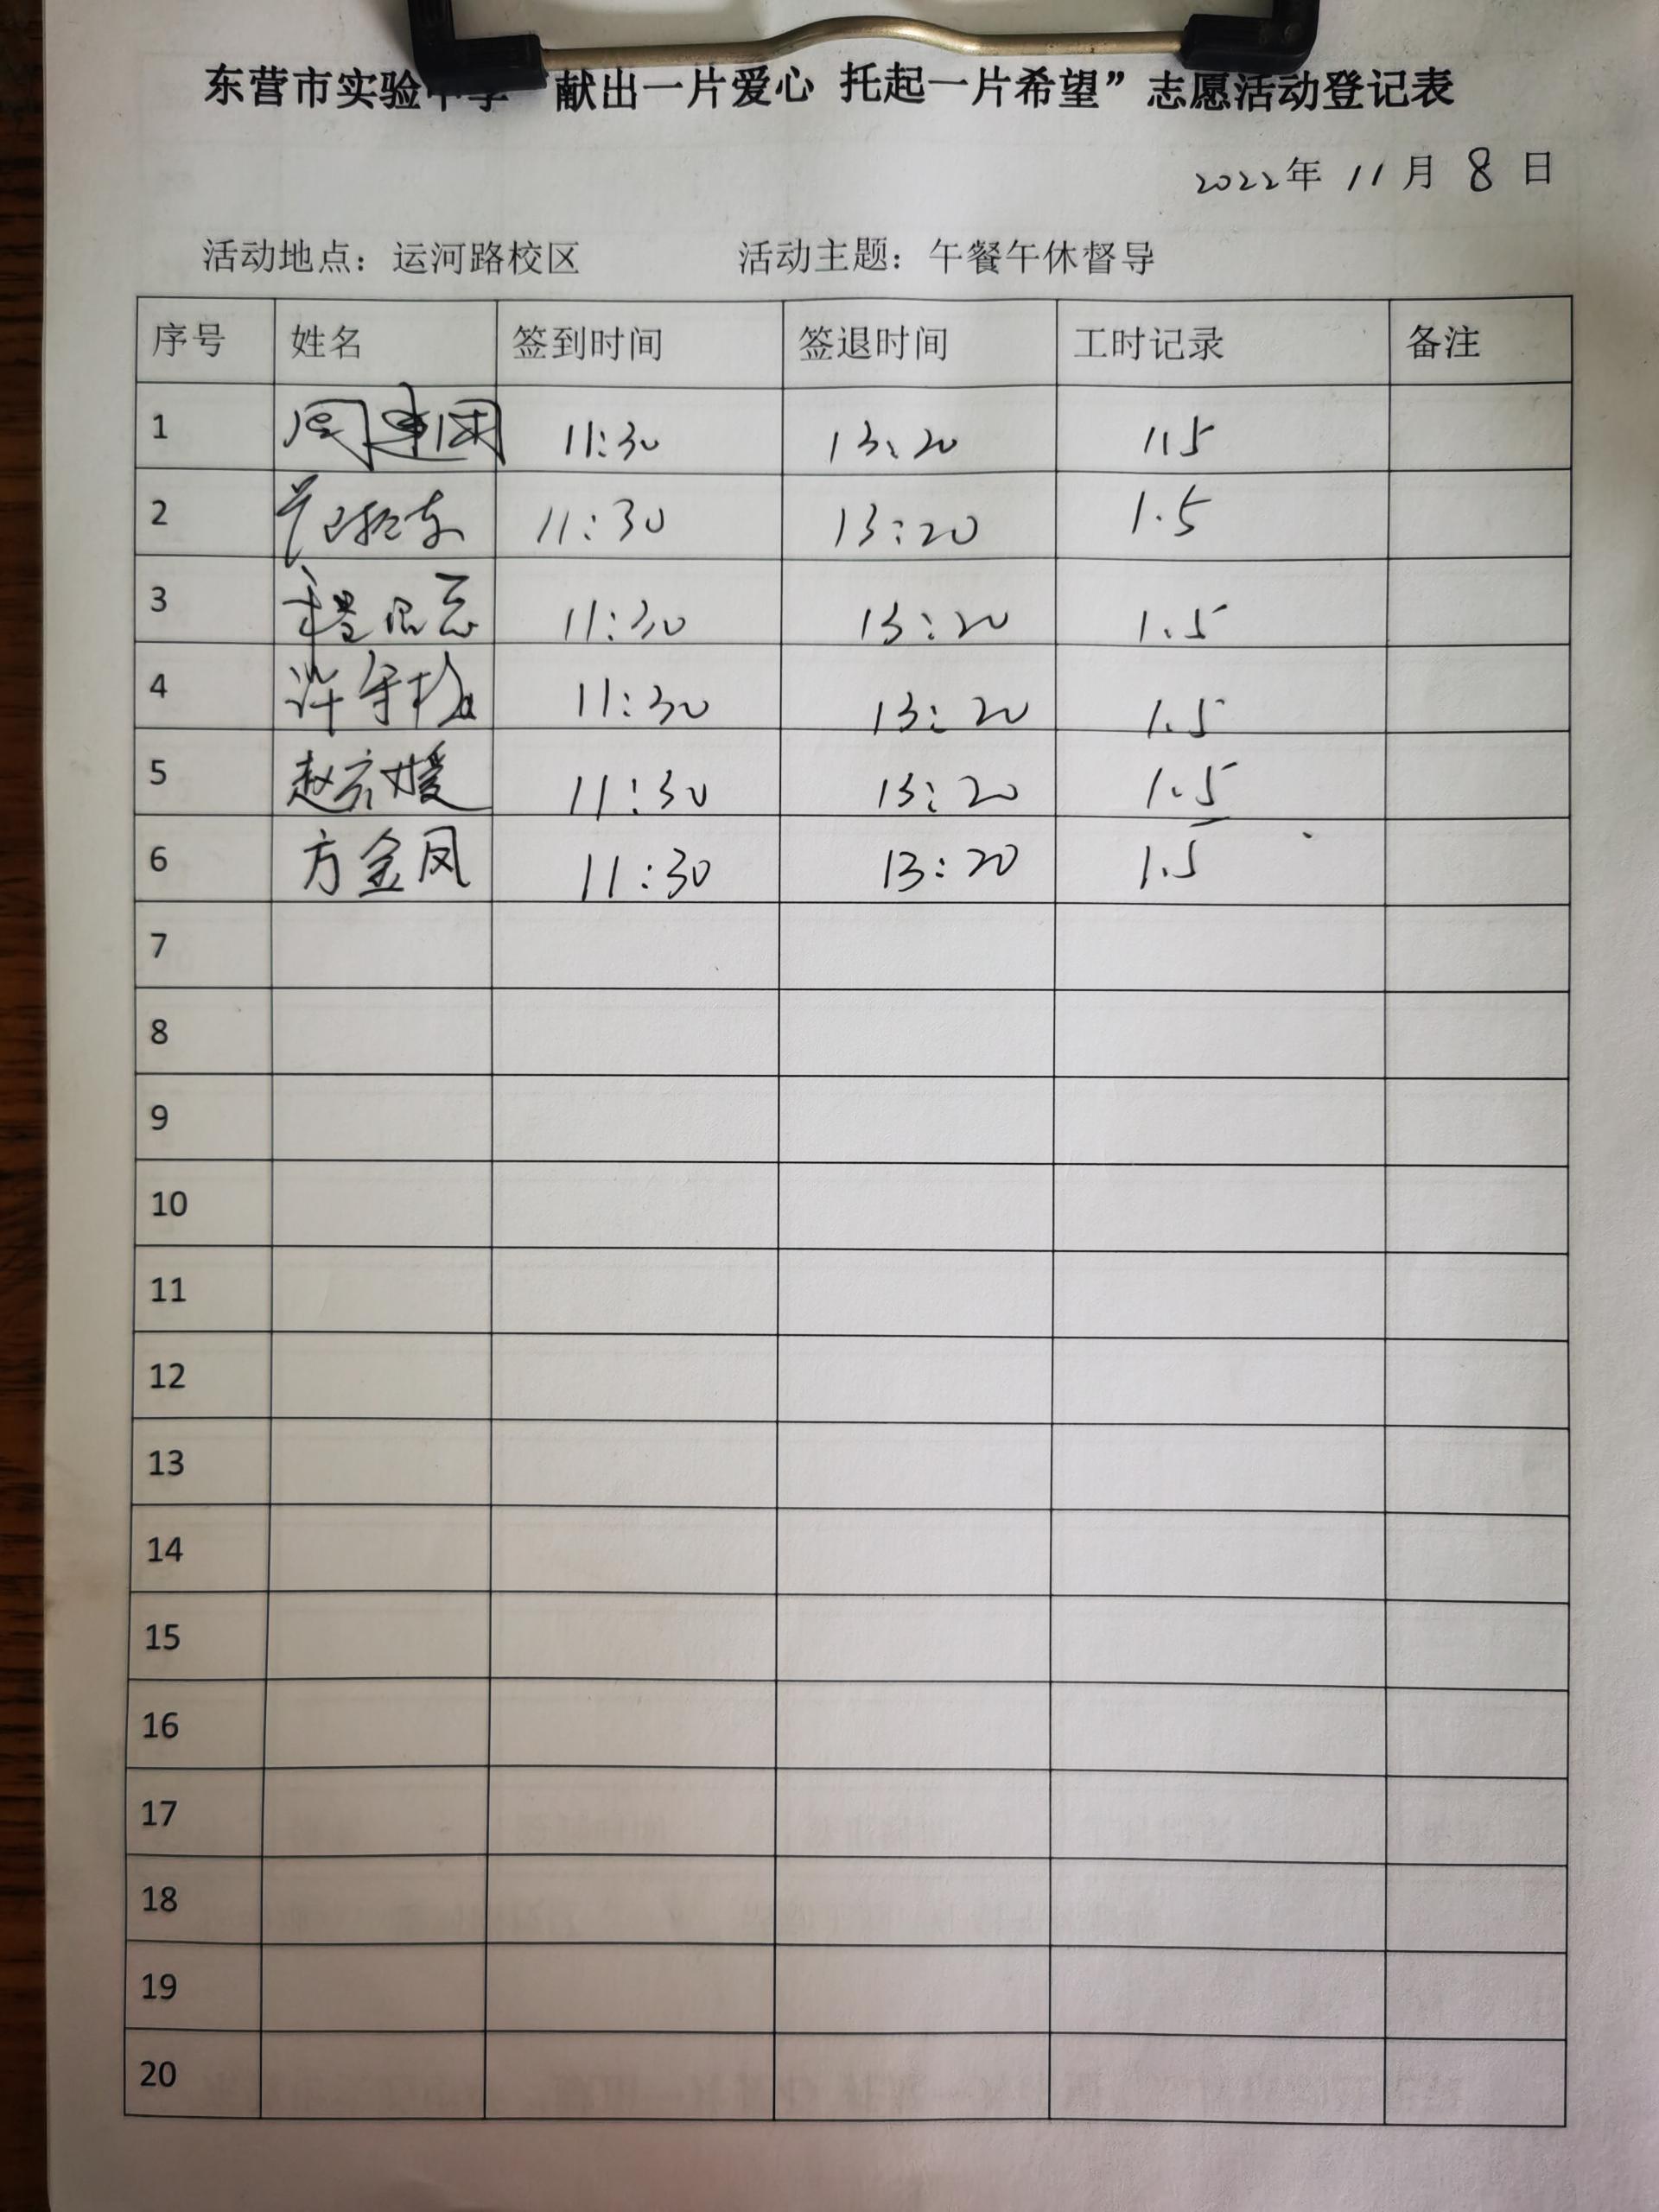 东营市实验中学“献出一片爱心 托起一片希望”志愿活动登记表
2022年 11 月 8 日
活动地点：运河路校区 活动主题：午餐午休督导
序号 姓名 签到时间 签退时间 工时记录 备注
1 11:30 13:20 1.5
2 11:30 13:20 1.5
3 11:30 13:20 1.5
4 11:30 13:20 1.5
5 11:30 13:20 1.5
6 方金凤 11:30 13:20 1.5
7
8
9
10
11
12
13
14
15
16
17
18
19
20